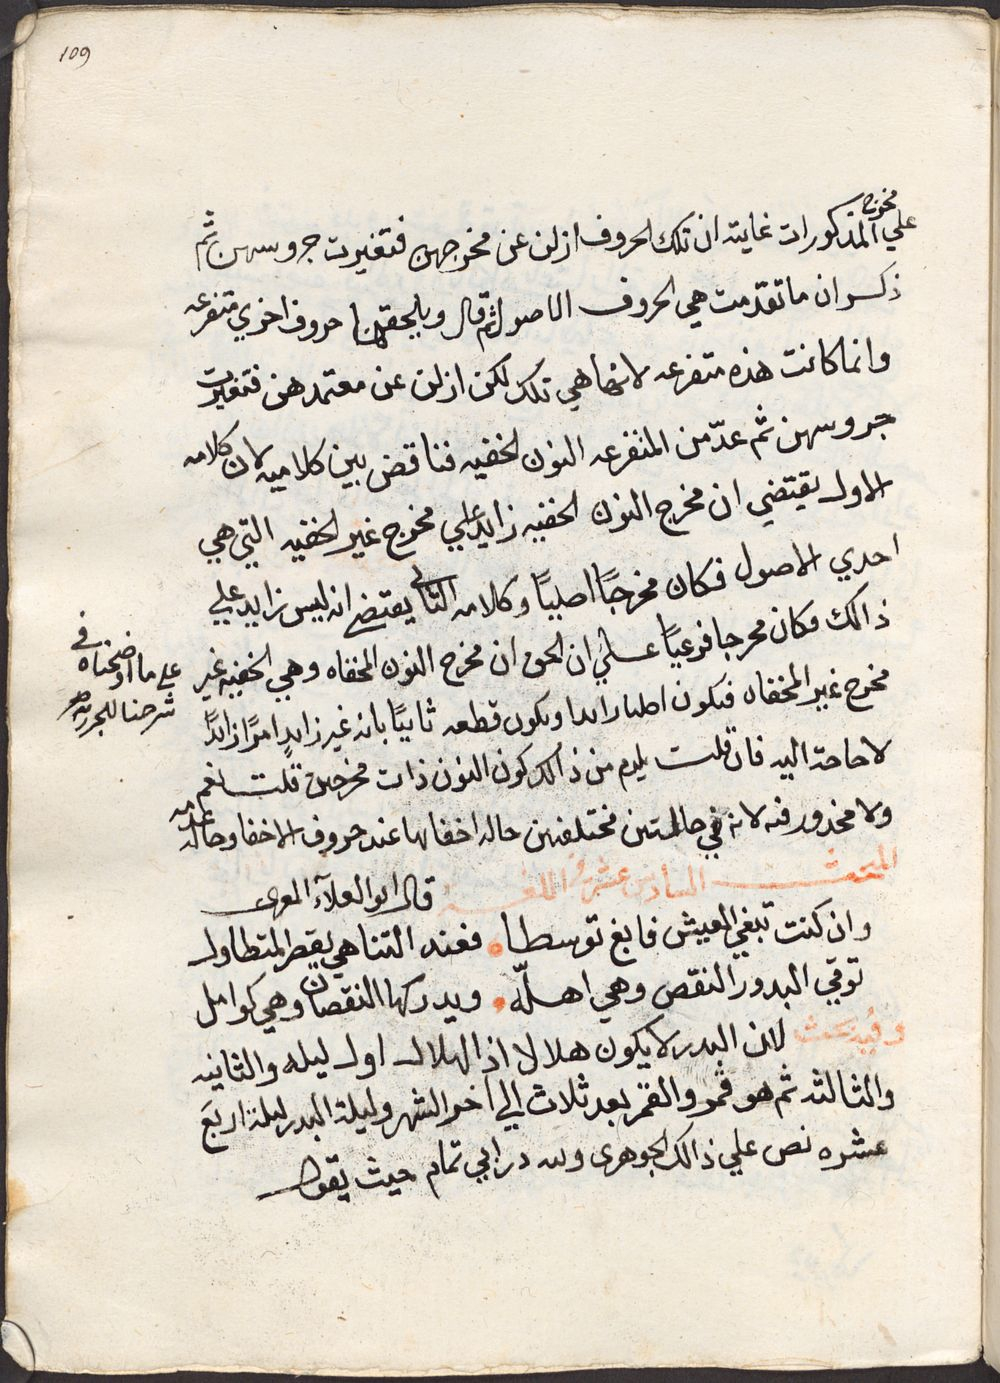 109
مخرج
علي المذكورات غايته ان تلك الحروف ازلن عن مخرجهن فتغيرت جروسهن ثم
ذكر ان ما تقدمت هي الحروف الاصول ثم قال ويلحقها حروف اخري متفرعه
وانما كانت هذه متفرعه لانها هي تلك لكن ازلن عن معتمدهن فتغيرت
جروسهن ثم عدّ من المتفرعه النون الخفيه فناقض بين كلاميه لان كلامه
الاول يقتضي ان مخرج النون الخفيه زايد علي مخرج غير الخفيه التي هي
احدي الاصول فكان مخرجًا اصليًا وكلامه الثاني يقتضي انه ليس زايد علي
ذالك فكان مخرجا فرعيًا علي ان الحق ان مخرج النون المخفاه وهي الخفيه غير
مخرج غير المخفاه فيكون اصليا زايدا ويكون قطعه ثانيًا بانه غير زايدٍ امرًا زائدًا
علي ما اوضحناه في
شرحنا للجزريه
لا حاجة اليه فان قلت يلزم من ذالك كون النون ذات مخرجين قلت نعم
ولا محذور فيه لانه في حالتين مختلفتين حاله اخفايها عند حروف الاخفا وحاله عدمه
المبحث السادس عشر في اللغه قال ابو العلآء المعرى
وان كنت تبغي العيش فابغ توسطا فعند التناهي يقصر المتطاول
توقي البدور النقص وهي اهلّه ويدركها النقصان وهي كوامل
وفيه بحث لان البدر لا يكون هلالا اذ الهلال اول ليله والثانيه
والثالثه ثم هو قمر والقمر بعد ثلاث الي اخر الشهر وليلة البدر ليلة اربع
عشره نص علي ذالك الجوهرى ولله در ابي تمام حيث يقول